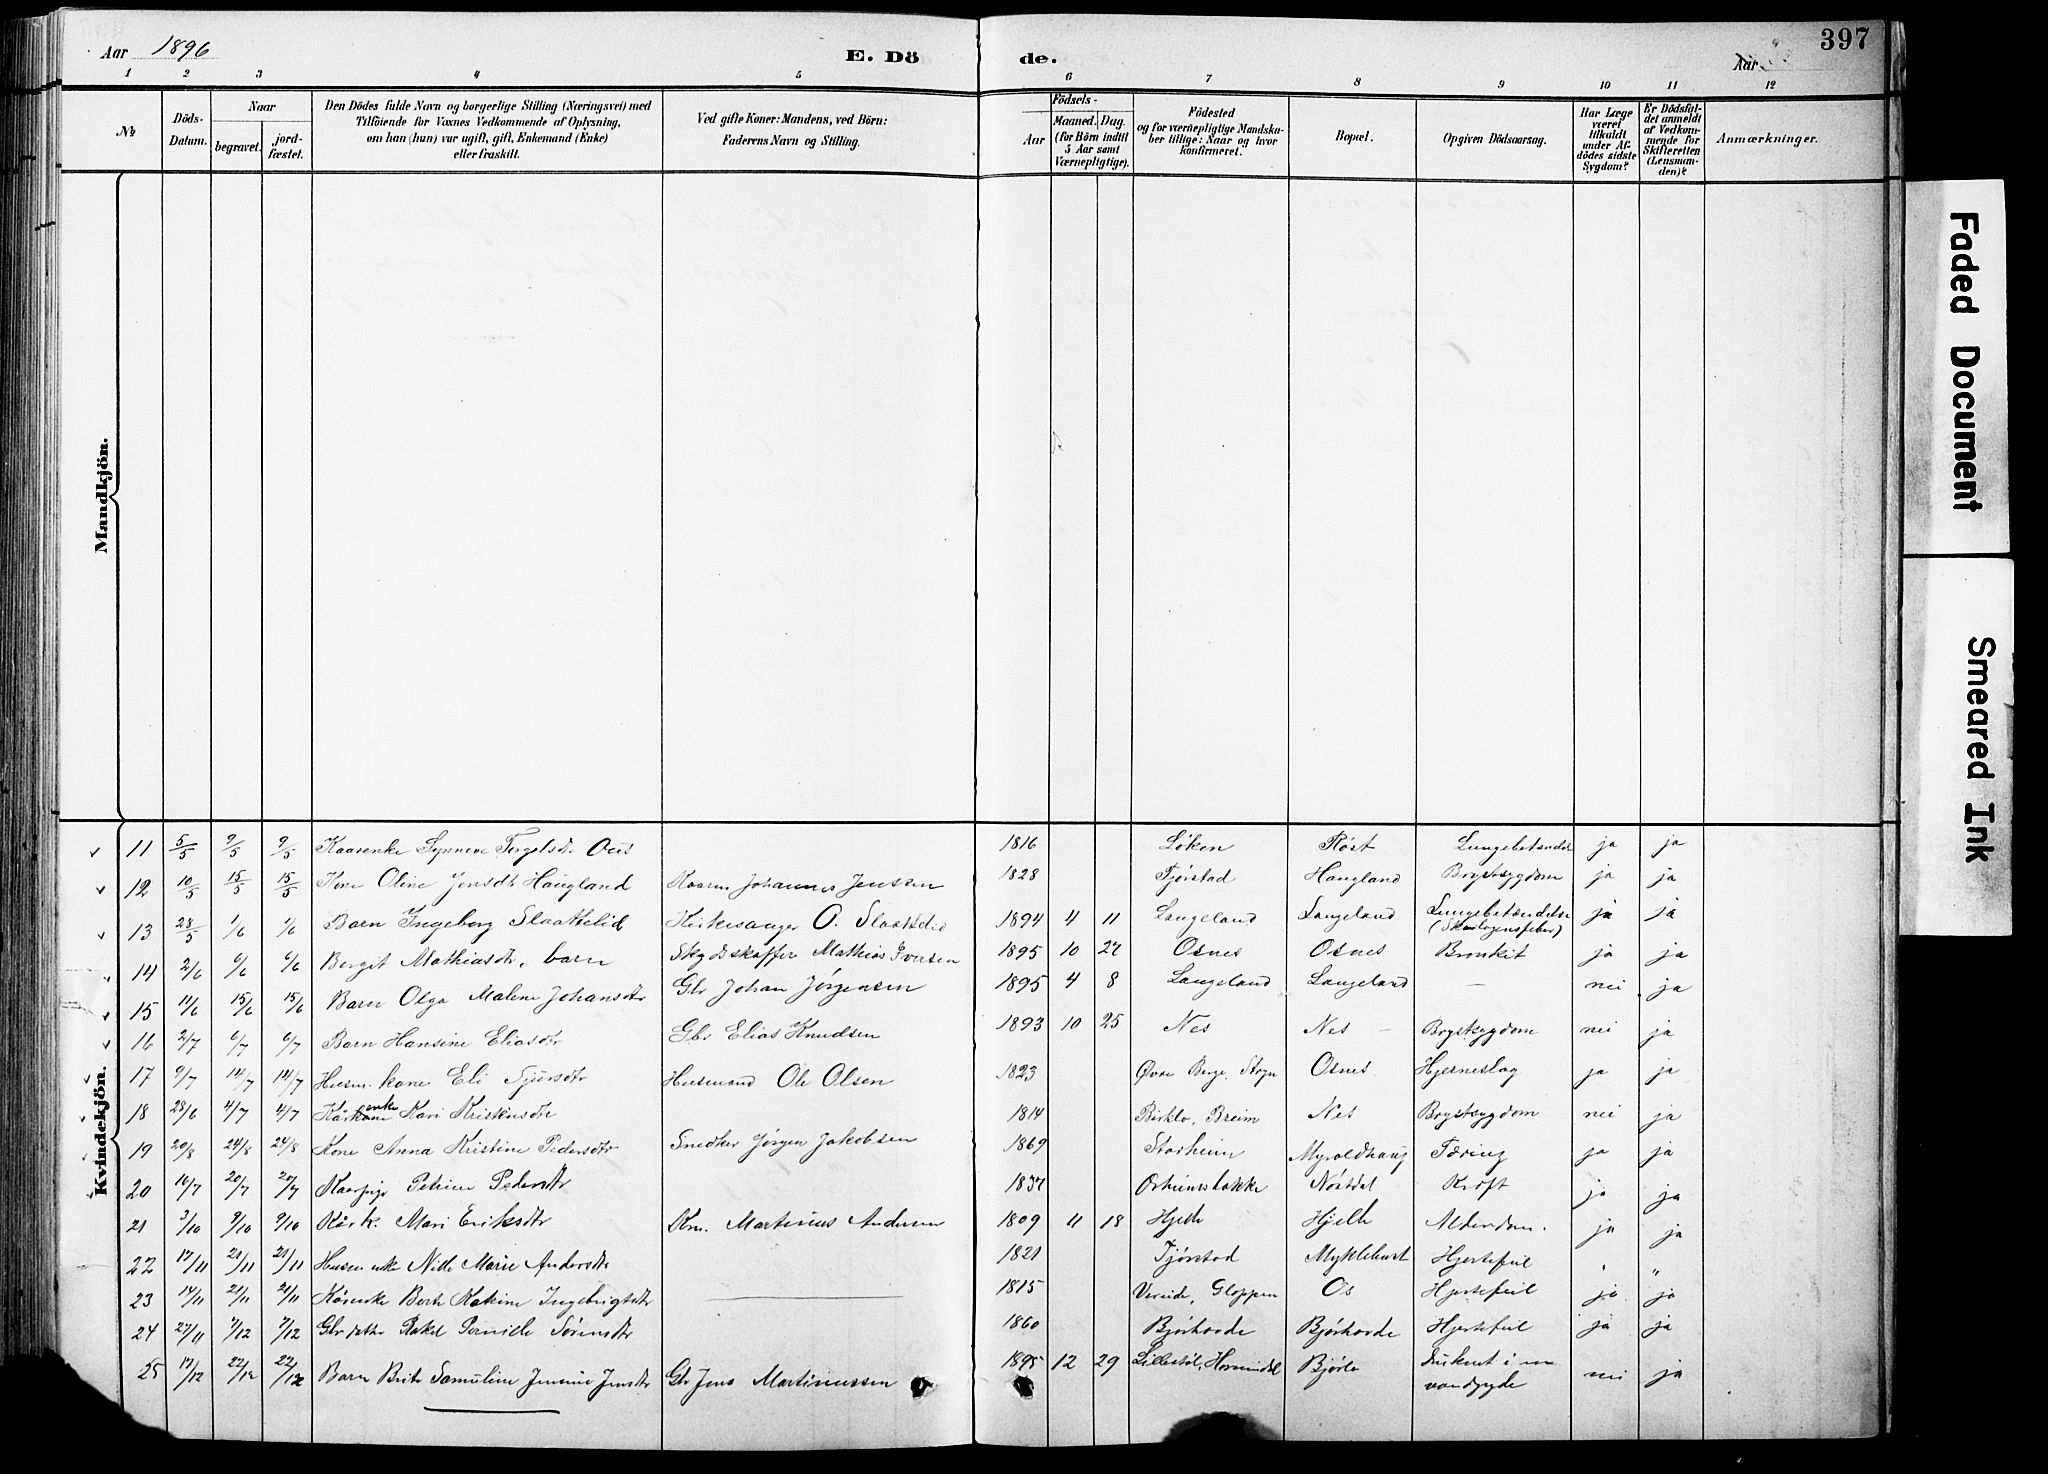 Aar 1896
E. Dö
de.
Aar
397
1 2 3 4 5 6 7 8 9 10 11 12
No
Döds-Datum.
Naar
begravet.
jord-fæstet.
Den Dödes fulde Navn og borgerlige Stilling (Næringsvei) med
Tilföiende for Voxnes Vedkommende af Oplysning,
om han (hun) var ugift, gift, Enkemand (Enke)
eller fraskilt.
Ved gifte Koner: Mandens, ved Börn:
Faderens Navn og Stilling.
Födsels-
Aar
Maaned. Dag.
(for Börn indtil
5 Aar samt
Værnepligtige).
Födested
og for værnepligtige Mandska-
ber tillige: Naar og hvor
konfirmeret.
Bopæl.
Opgiven Dödsaarsag.
Har Læge
været
tilkaldt
under Af-
dödes sidste
Sygdom?
Er Dödsfal-
det anmeldt
af Vedkom-
mende for
Skifteretten
(Lensman-
den)?
Anmærkninger.
Mandkjön.
Kvindekjön.
11 5/5 9/5 9/5 Kaarenke Synneve Ous 1816 Löken Röst ja ja
12 10/5 15/5 15/5 Kone Oline Jensdtr Haugland Johannes Jensen 1828 Tjørstad Haugland Brystsygdom ja ja
13 28/5 1/6 1/6 Barn Ingeborg Slaattelid Kirkesanger O. Slaattelid 1894 4 11 Langeland Langeland Lungebetændelse ja ja
(Skarlagensfeber)
14 2/6 6/6 6/6 Bergit Mathiasdtr, barn Skydsskaffer Mathias Iversen 1895 10 27 Osnes Osnes Bronkit ja ja
15 11/6 15/6 15/6 Barn Olga Malene Johansdtr Gbr Johan Jørgensen 1895 4 8 Langeland Langeland — nei ja
16 2/7 6/7 6/7 Barn Hansine Eliasdtr Gbr Elias Knudsen 1893 10 25 Nes Nes Brystsygdom nei ja
17 9/7 14/7 14/7 Husm. kone Eli Sjursdtr Husmand Ole Olsen 1823 Øvre Berge, Stryn Osnes Hjerneslag ja ja
18 28/6 4/7 4/7 enke Kari 1814 Birklo, Breim Nes Brystsygdom nei ja
19 20/8 24/8 24/8 Kone Anna Kristine Pedersdtr Snedker Jørgen Jakobsen 1869 Storheim Myroldhaug Tæring ja ja
20 16/7 20/7 20/7 Petrine Pedersdtr 1837 Nöstdal Kræft ja ja
21 3/10 9/10 9/10 Kårk. Mari Eriksdtr Km. Martinus Andersen 1809 11 18 Hjelle Hjelle Alderdom. ja ja
22 17/11 21/11 21/11 Husm enke Marie Andersdtr 1821 Tjørstad Myklebust Hjertefeil " "
23 14/11 21/11 21/11 Kårenke Berte Katrine Ingebrigtsdtr 1815 Vereide, Gloppen Os Hjertefeil ja ja
24 27/11 7/12 7/12 Gbr datter Rakel Pernille Sörensdtr 1860 Bjørhovde Bjørhovde Hjertefeil ja ja
25 17/12 22/12 22/12 Barn Brite Samuline Jensine Jensdtr Gbr Jens Martinussen 1895 12 29 Lillestöl, Hornindal Bjørlo Druknet i en nei ja
vandgryde
Faded Document
Smeared Ink